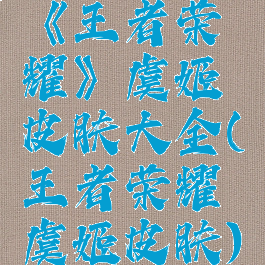 《王者荣
耀》虞姬
皮肤大全(
王者荣耀
虞姬皮肤)